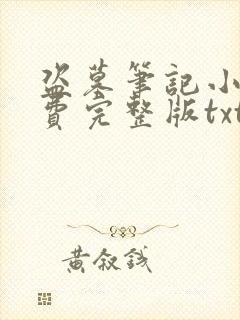 盗墓筆記小
費完整版txt
黄叙錢